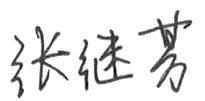 张继芳